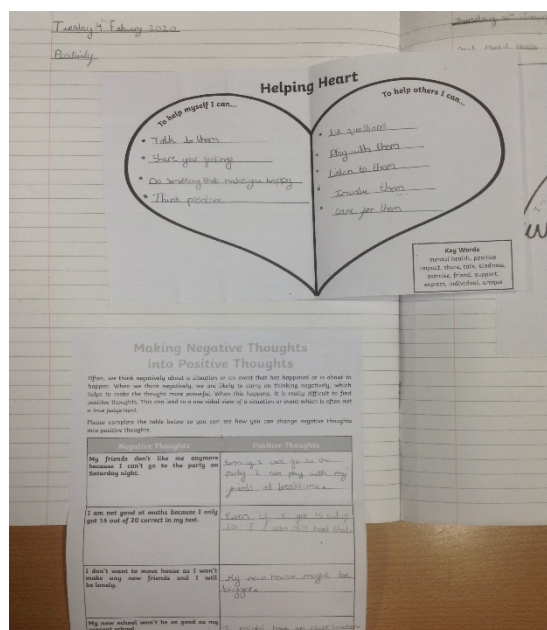 Tuesday 4th February 2020
Positivity
Helping Heart
To help myself I can...
• Talk to them
• Share your feelings
• Do something that makes you happy
• Think positive
To help others I can...
• Ask questions
• Play with them
• Listen to them
• Involve them
• Care for them
Key Words
mental health, positive
impact, share, talk, kindness,
exercise, friend, support,
express, individual, unique
Making Negative Thoughts
into Positive Thoughts
Often, we think negatively about a situation or an event that has happened or is about to
happen. When we think negatively, we are likely to carry on thinking negatively, which
helps to make the thought more powerful. When this happens, it is really difficult to find
positive thoughts. This can lead to a one sided view of a situation or event which is often not
a true judgement.
Please complete the table below so you can see how you can change negative thoughts
into positive thoughts.
Negative Thoughts
Positive Thoughts
My friends don't like me anymore
because I can't go to the party on
Saturday night.
go to the
party I can play with my
friends at breaktime.
I am not good at maths because I only
got 16 out of 20 correct in my test.
Even if I got 16 out of
20 I can still beat that
I don't want to move house as I won't
make any new friends and I will
be lonely.
My new house might be
bigger.
My new school won't be as good as my
current school.
I might have